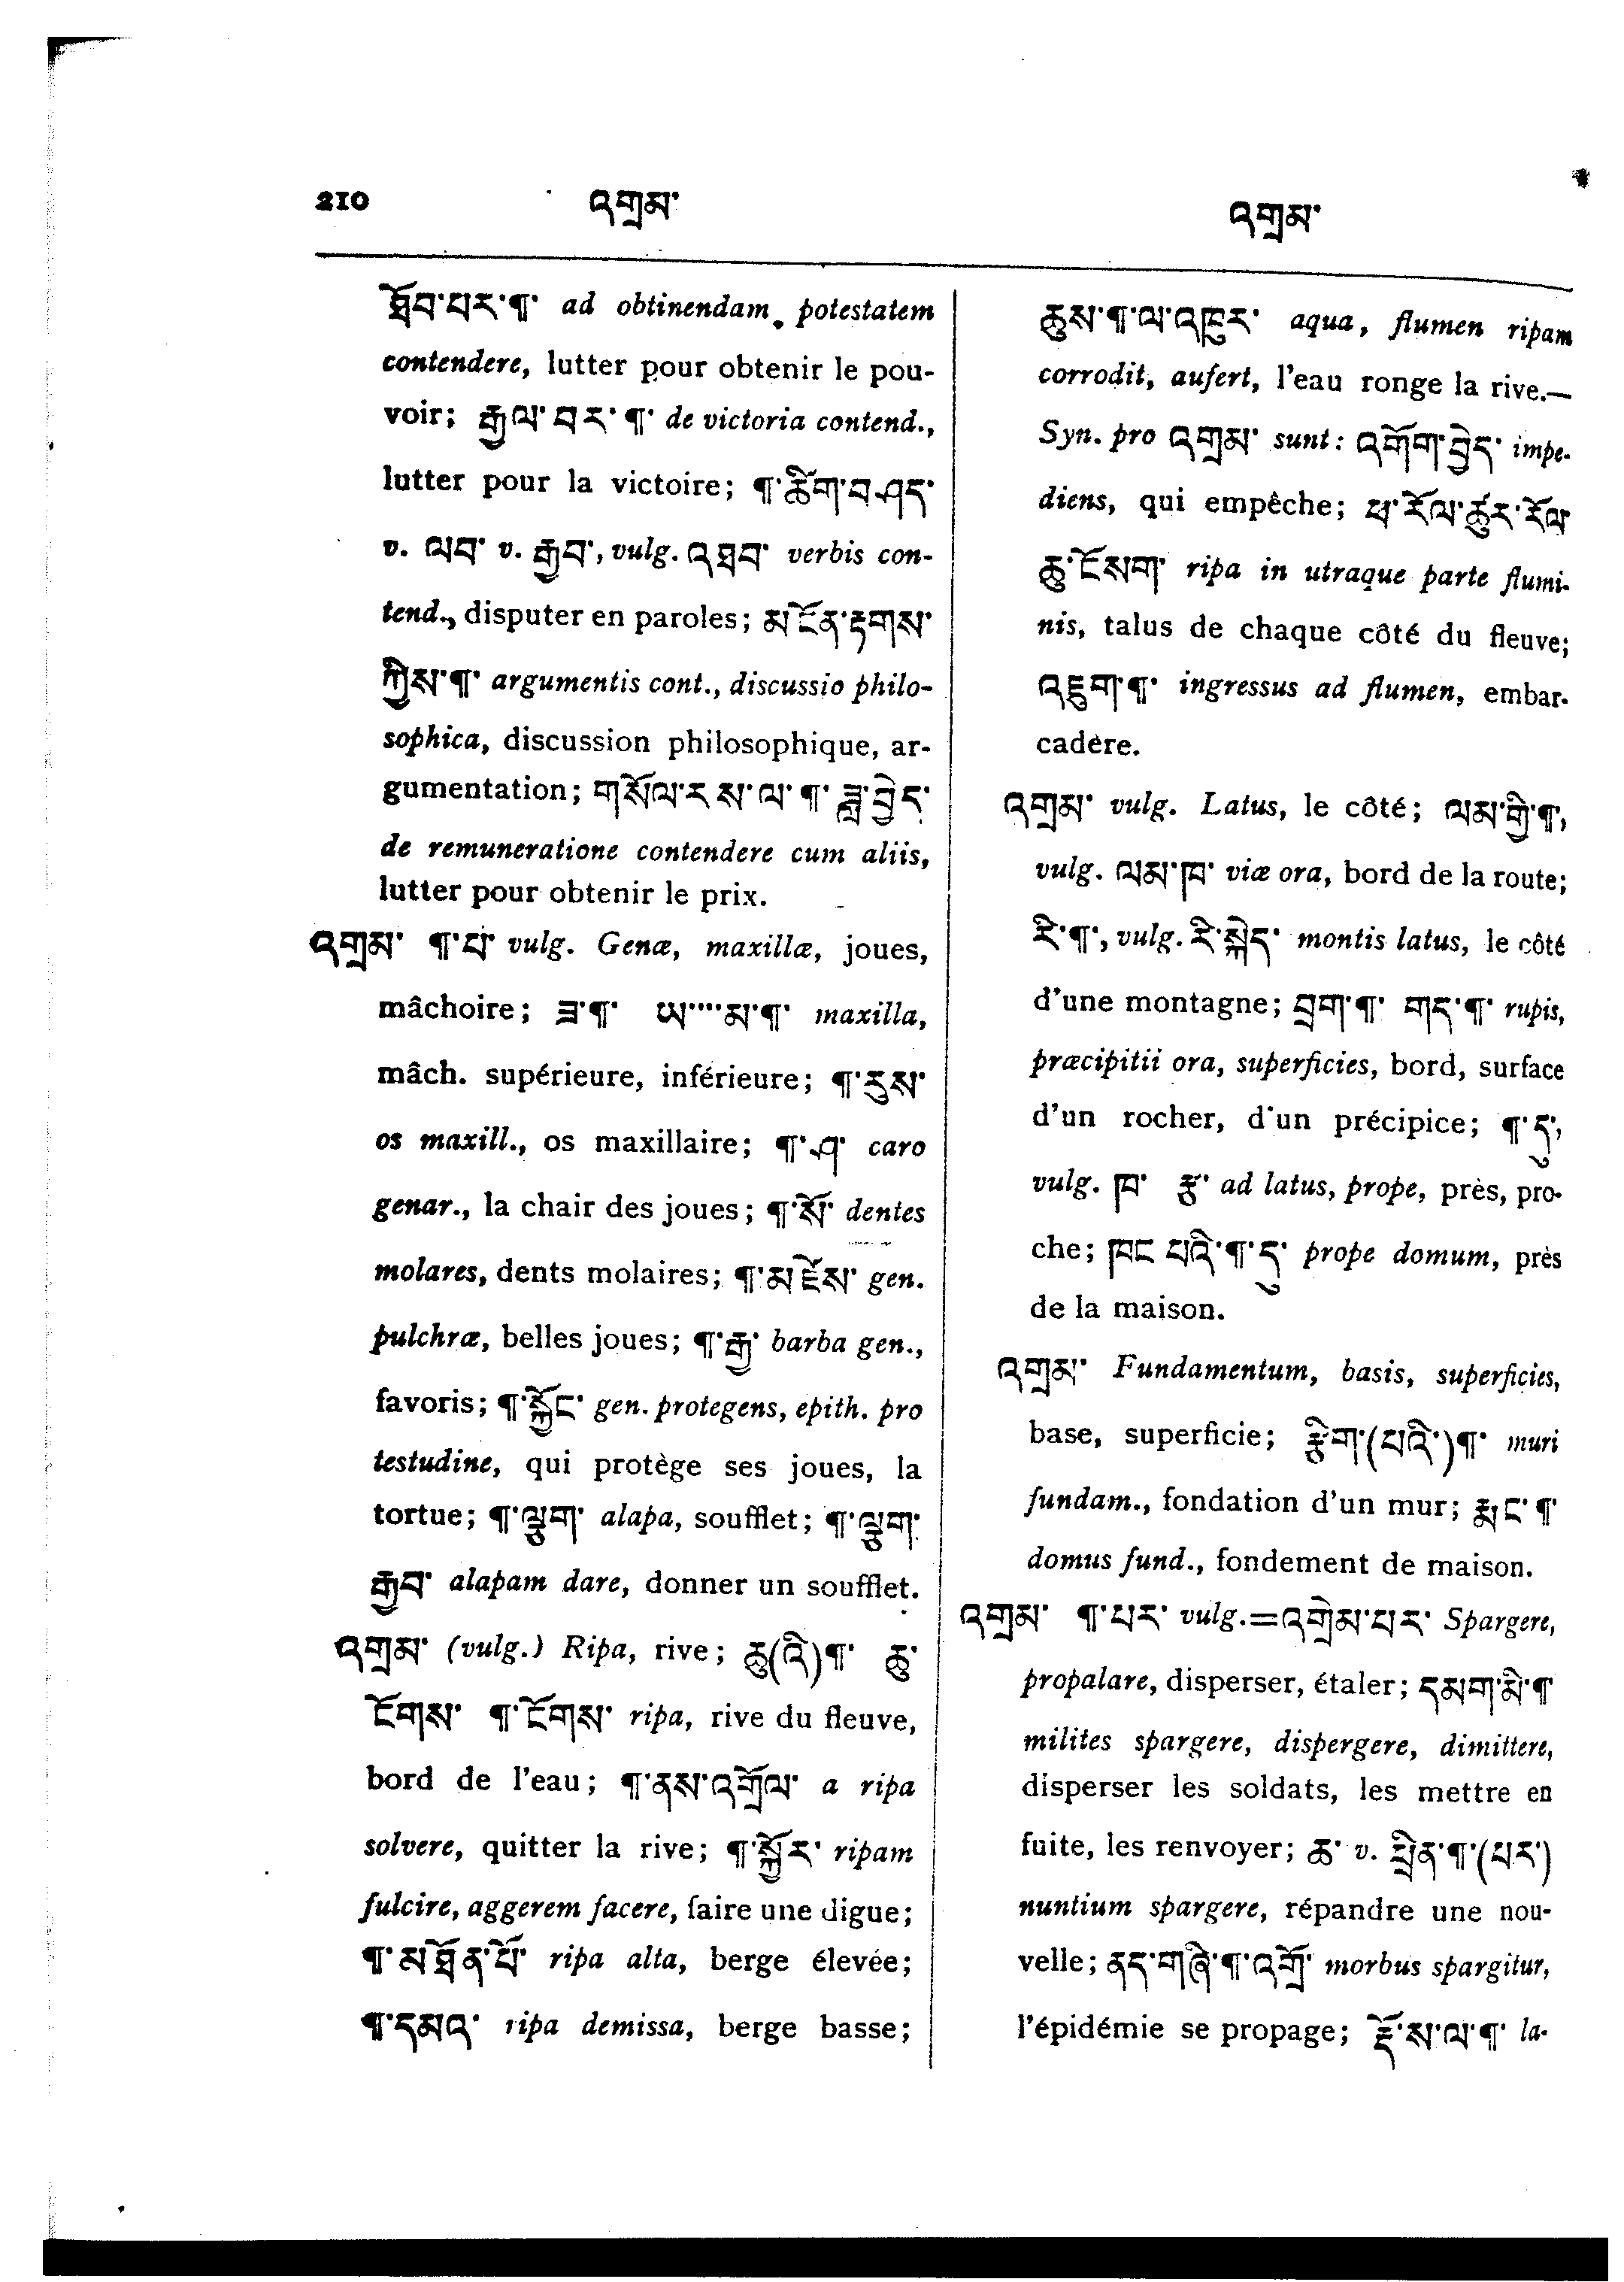 210 འགྲམ་ འགྲམ་
ཐོབ་པར་¶་ ad obtinendam potestatem
contendere, lutter pour obtenir le pou-
voir; རྒྱལ་བར་¶་ de victoria contend.,
lutter pour la victoire; ¶་ཚིག་བཤད་
v. ལབ་ v. རྒྱབ་, vulg. འཐབ་ verbis con-
tend., disputer en paroles; མངོན་རྟགས་
ཀྱིས་¶་ argumentis cont., discussio philo-
sophica, discussion philosophique, ar-
gumentation; གསོལ་རས་ལ་¶་ཟླ་བྱེད་
de remuneratione contendere cum aliis,
lutter pour obtenir le prix.
འགྲམ་ ¶་པ་ vulg. Genæ, maxillæ, joues,
mâchoire; ཟ་¶་ ཡ་....མ་¶་ maxilla,
mâch. supérieure, inférieure; ¶་རུས་
os maxill., os maxillaire; ¶་ཤ་ caro
genar., la chair des joues; ¶་སོ་ dentes
molares, dents molaires; ¶་མཛེས་ gen.
pulchræ, belles joues; ¶་རྒྱ་ barba gen.,
favoris; ¶་སྐྱོང་ gen. protegens, epith. pro
testudine, qui protège ses joues, la
tortue; ¶་ལྕག་ alapa, soufflet; ¶་ལྕག་
རྒྱབ་ alapam dare, donner un soufflet.
འགྲམ་ (vulg.) Ripa, rive; ཆུ(འི)¶་ ཆུ་
ངོགས་ ¶་ངོགས་ ripa, rive du fleuve,
bord de l'eau; ¶་ནས་འགྲོལ་ a ripa
solvere, quitter la rive; ¶་སྐྱོར་ ripam
fulcire, aggerem facere, faire une digue;
¶་མཐོན་པོ་ ripa alta, berge élevée;
¶་དམའ་ ripa demissa, berge basse;
ཆུས་¶་ལ་འཁུར་ aqua, flumen ripam
corrodit, aufert, l'eau ronge la rive.—
Syn. pro འགྲམ་ sunt: འགོག་བྱེད་ impe-
diens, qui empêche; ཕ་རོལ་ཚུར་རོལ་
ཆུ་ངོསག་ ripa in utraque parte flumi-
nis, talus de chaque côté du fleuve;
འཇུག་¶་ ingressus ad flumen, embar-
cadère.
འགྲམ་ vulg. Latus, le côté; ལམ་གྱི་¶་,
vulg. ལམ་ཁ་ viæ ora, bord de la route;
རི་¶་, vulg. རི་སྐེད་ montis latus, le côté
d'une montagne; བྲག་¶་ གད་¶་ rupis,
præcipitii ora, superficies, bord, surface
d'un rocher, d'un précipice; ¶་དུ་,
vulg. ཁ་ རྩ་ ad latus, prope, près, pro-
che; ཁང་པའི་¶་དུ་ prope domum, près
de la maison.
འགྲམ་ Fundamentum, basis, superficies,
base, superficie; རྩིག་(པའི་)¶་ muri
fundam., fondation d'un mur; རྨང་¶་
domus fund., fondement de maison.
འགྲམ་ ¶་པར་ vulg.=འགྲེམ་པར་ Spargere,
propalare, disperser, étaler; དམག་མི་¶་
milites spargere, dispergere, dimittere,
disperser les soldats, les mettre en
fuite, les renvoyer; ཆ་ v. ཕྲིན་¶་(པར་)
nuntium spargere, répandre une nou-
velle; ནད་གཞི་¶་འགྲོ་ morbus spargitur,
l'épidémie se propage; རྡོ་ས་ལ་¶་ la-